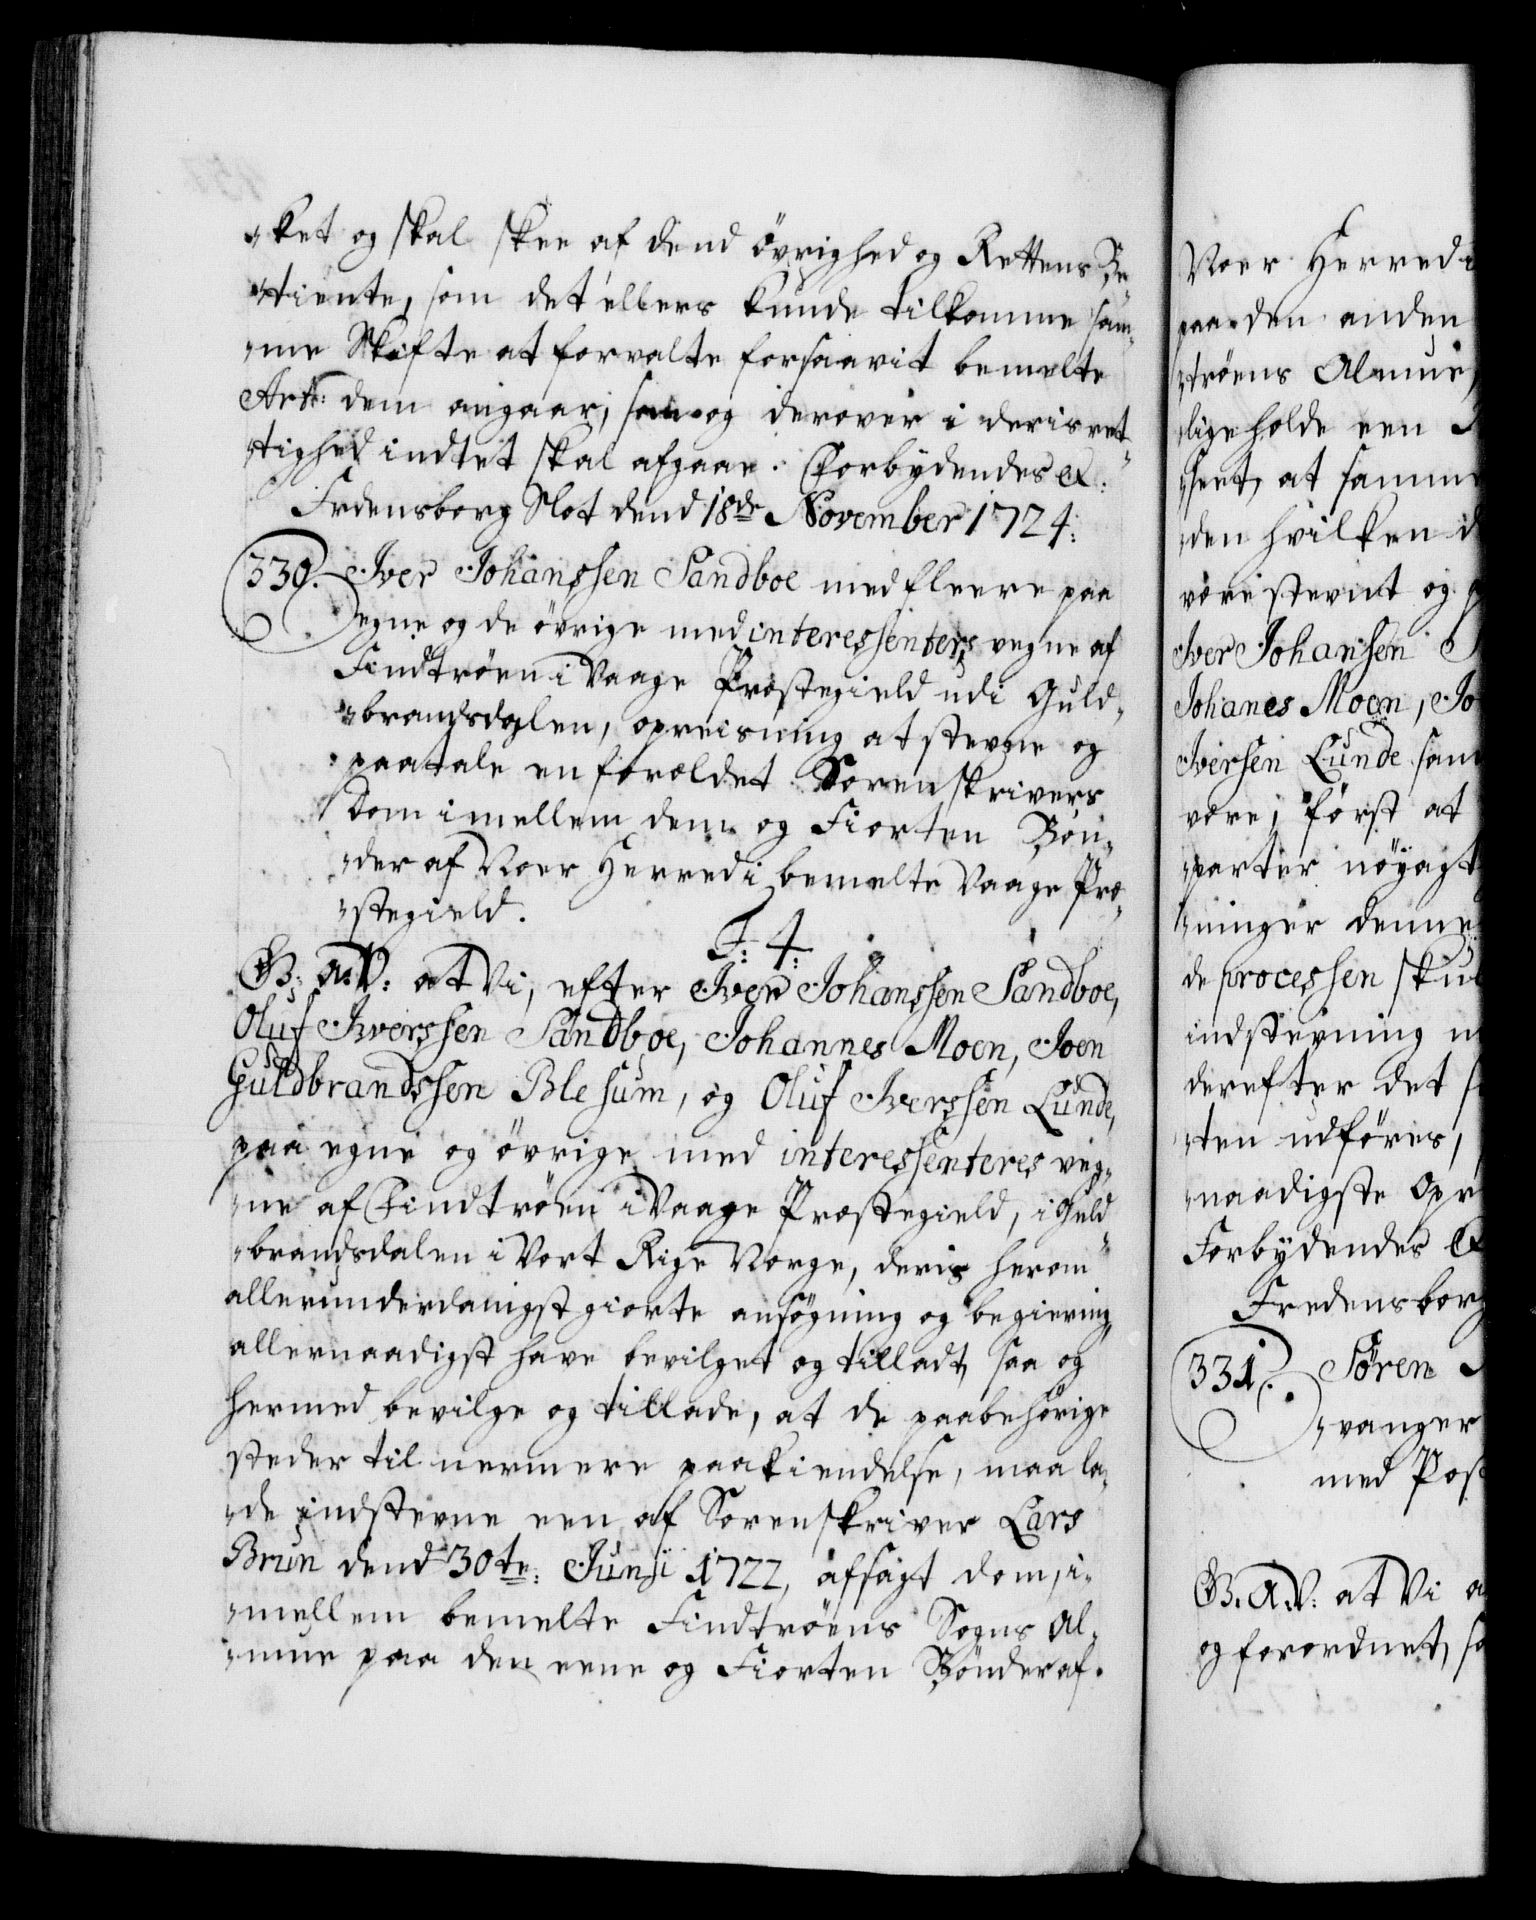 „ket og skal skee af dend Övrighed og Rettens Be„
„tiente, som det ellers kunde tilkomme sam„
„me Skifte at forvalte forsaavit bemelte
Art: dem angaar, som og derover i deris ret„
„tighed indtet skal afgaae. Forbydendes &.
Fredensborg Slot dend 18de November 1724:
330. Iver Johanssen Sandboe med fleere paa
egne og de övrige med interessenters vegne af
Findtröen i Vaage Præstegield udi Guld„
„brandsdalen, opreisning at stevne og
paatale en foreldet Sorenskrivers
Dom imellem dem og Fiorten Bön„
„der af Noer Herred i bemelte Vaage Præ„
„stegield.
F: 4:
G: A: V: at Vi, efter Iver Johanssen Sandboe,
Oluf Iverssen Sandboe, Johannes Moen, Joen
Guldbrandssen Blesum, og Oluf Iverssen Lunde,
paa egne og övrige med interessenteres veg„
„ne af Findtröen i Vaage Præstegield, i Guld„
„brandsdalen i Vort Rige Norge, deris herom
allerunderdanigst giorte ansögning og begiering,
allernaadigst have bevilget og tilladt, saa og
hermed bevilge og tillade, at de paabehörige
steder til nermere paakiendelse, maa la„
„de indstevne een af Sorenskriver Lars
Brun dend 30te: Junii 1722, afsagt dom, i„
„mellem bemelte Findtröens Sogns Al„
„mue paa den eene og Fiorten Bönder af
Noer Herred i
paa den anden
„tröens Almue,
„lige holde een
„sert, at samme
„den hvilken d
være stevnt og
Iver Johansen
Johanes Moen, Jo
Iversen Lunde sam
være, först at
„parter nöyagt
„ninger denne
de processen skul
indstevning
derefter det
„ten udföres,
„naadigste Opr
Forbydendes &
Fredensborg
331. Sören
„vanger
med Pos
G. A. V: at Vi
og forordnet, so